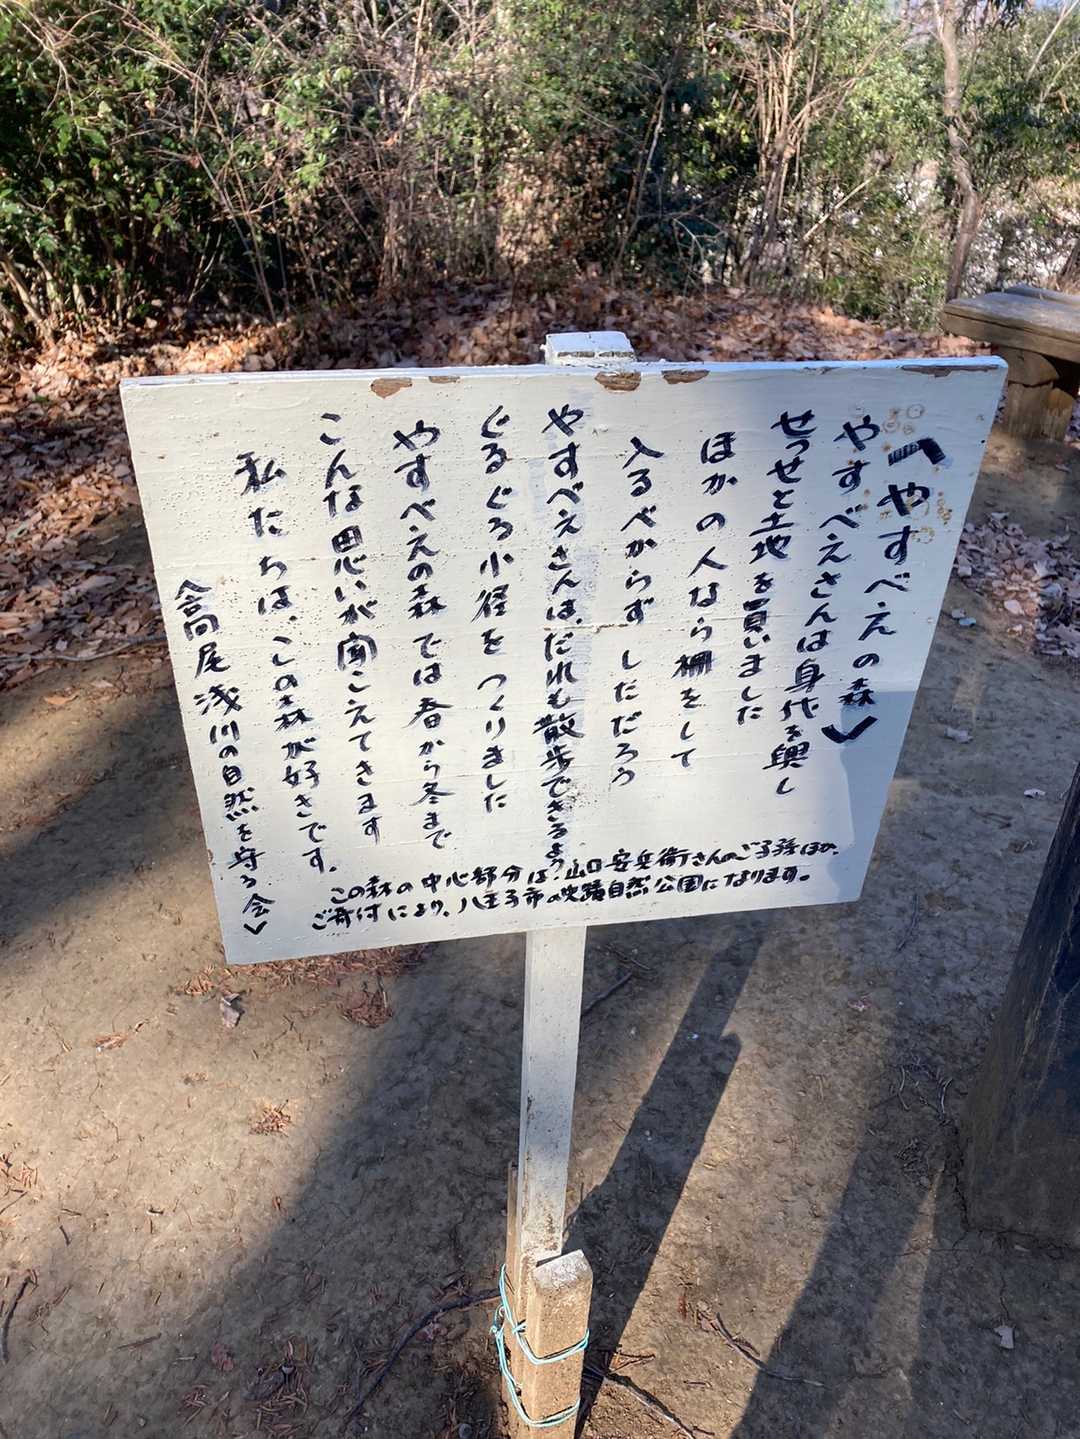 〈やすべえの森〉
やすべえさんは身代を興し
せっせと土地を買いました
ほかの人なら柵をして
入るべからず しただろう
やすべえさんは、だれも散歩できるよう
ぐるぐる小径をつくりました
やすべえの森では春から冬まで
こんな思いが聞こえてきます
私たちは、この森が好きです。
〈高尾浅川の自然を守る会〉
この森の中心部分は、山口安兵衛さんのご子孫ほか、
ご寄付により、八王子市の史蹟自然公園になります。